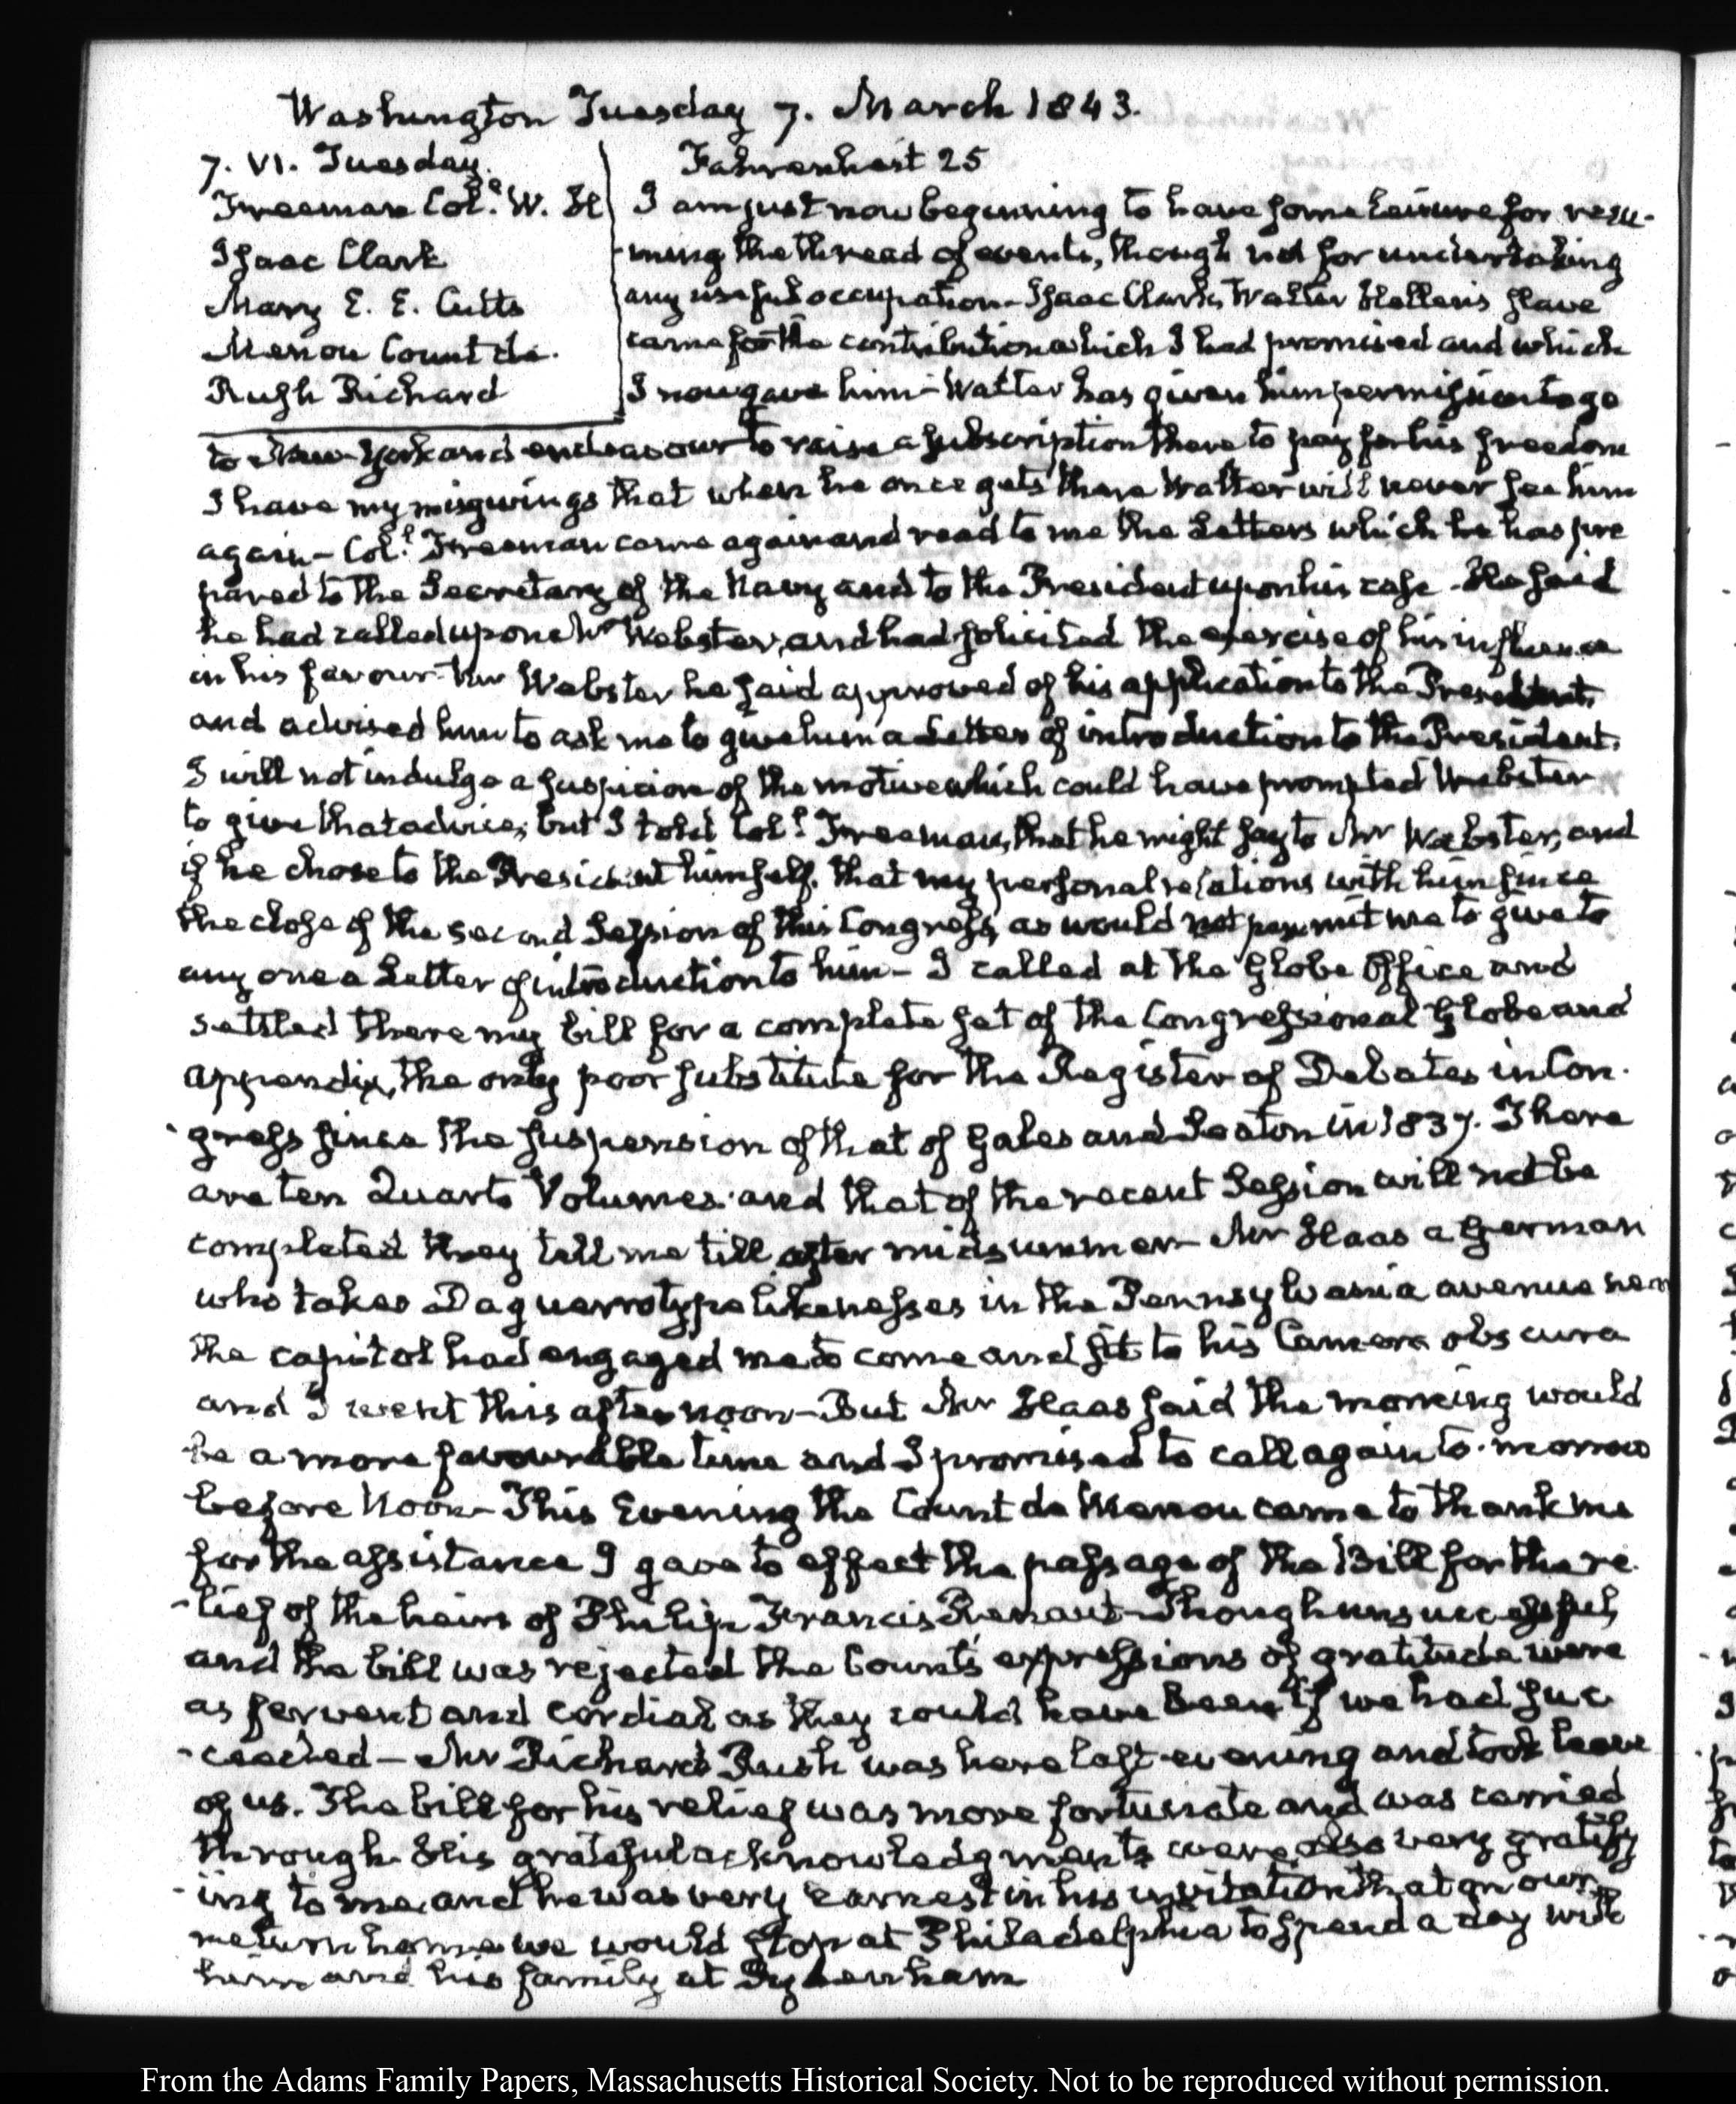 Washington Tuesday 7. March 1843.
7. VI. Tuesday.
Freeman Col.l W. H
Isaac Clark
Mary E. E. Cutts
Menou Count de.
Rush Richard
Fahrenheit 25
I am just now beginning to have some leisure for resu-
-ming the thread of events, though not for undertaking
any useful occupation - Isaac Clark, Walter Hellen's slave
came for the contribution which I had promised and which
I now gave him - Walter has given him permission to go
to New-York and endeavour to raise a subscription there to pay for his freedom
I have my misgivings that when he once gets there Walter will never see him
again - Col.l Freeman came again and read to me the Letters which he has pre
pared to the Secretary of the Navy and to the President upon his case - He said
he had called upon Mr Webster, and had solicited the exercise of his influence
in his favour - Mr Webster he said approved of his application to the President,
and advised him to ask me to give him a Letter of introduction to the President.
I will not indulge a suspicion of the motive which could have prompted Webster
to give that advice; but I told Col.l Freeman, that he might say to Mr Webster, and
if he chose to the President himself, that my personal relations with him since
the close of the second Session of this Congress, as would not permit me to give to
any one a Letter of introduction to him - I called at the Globe Office and
settled there my bill for a complete set of the Congressional Globe and
appendix, the only poor substitute for the Register of Debates in Con-
-gress since the suspension of that of Gales and Seaton in 1837. There
are ten Quarto Volumes. and that of the recent Session will not be
completed they tell me till after midsummer - Mr Haas a German
who takes Daguerrotype likenesses in the Pennsylvania avenue near
the capitol had engaged me to come and sit to his Camera obscura
and I went this afternoon - But Mr Haas said the morning would
be a more favourable time and I promised to call again to-morrow
before Noon - This Evening the Count de Menou came to thank me
for the assistance I gave to effect the passage of the Bill for the re-
-lief of the heirs of Philip Francis Renaut - Though unsuccessful,
and the bill was rejected the Count's expressions of gratitude were
as fervent and cordial as they could have been if we had suc-
-ceeded - Mr Richard Rush was here last evening and took leave
of us. The bill for his relief was more fortunate and was carried
through. His grateful acknowledgments were also very gratify
-ing to me, and he was very earnest in his invitation that on our
return home we would stop at Philadelphia to spend a day with
him and his family at Sydenham
From the Adams Family Papers, Massachusetts Historical Society. Not to be reproduced without permission.